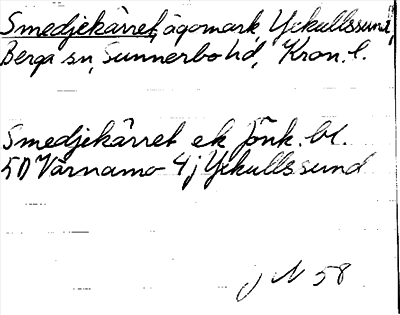 Smedjekärret, ägomark, Yckullssund,
Berga sn, Sunnerbo hd, Kron. l.
Smedjekärret ek Jönk. bl.
5D Värnamo 4j Yckullssund
j N 58